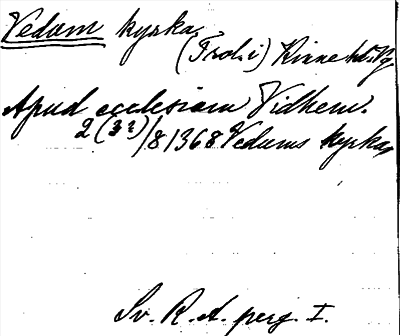 Vedum kyrka
(Trol. i) Kinne hd. Vg
Apud ecclesiam Vidhem.
2 (3?)/8 1368 Vedums kyrka
Sv. R. A. perg. I.